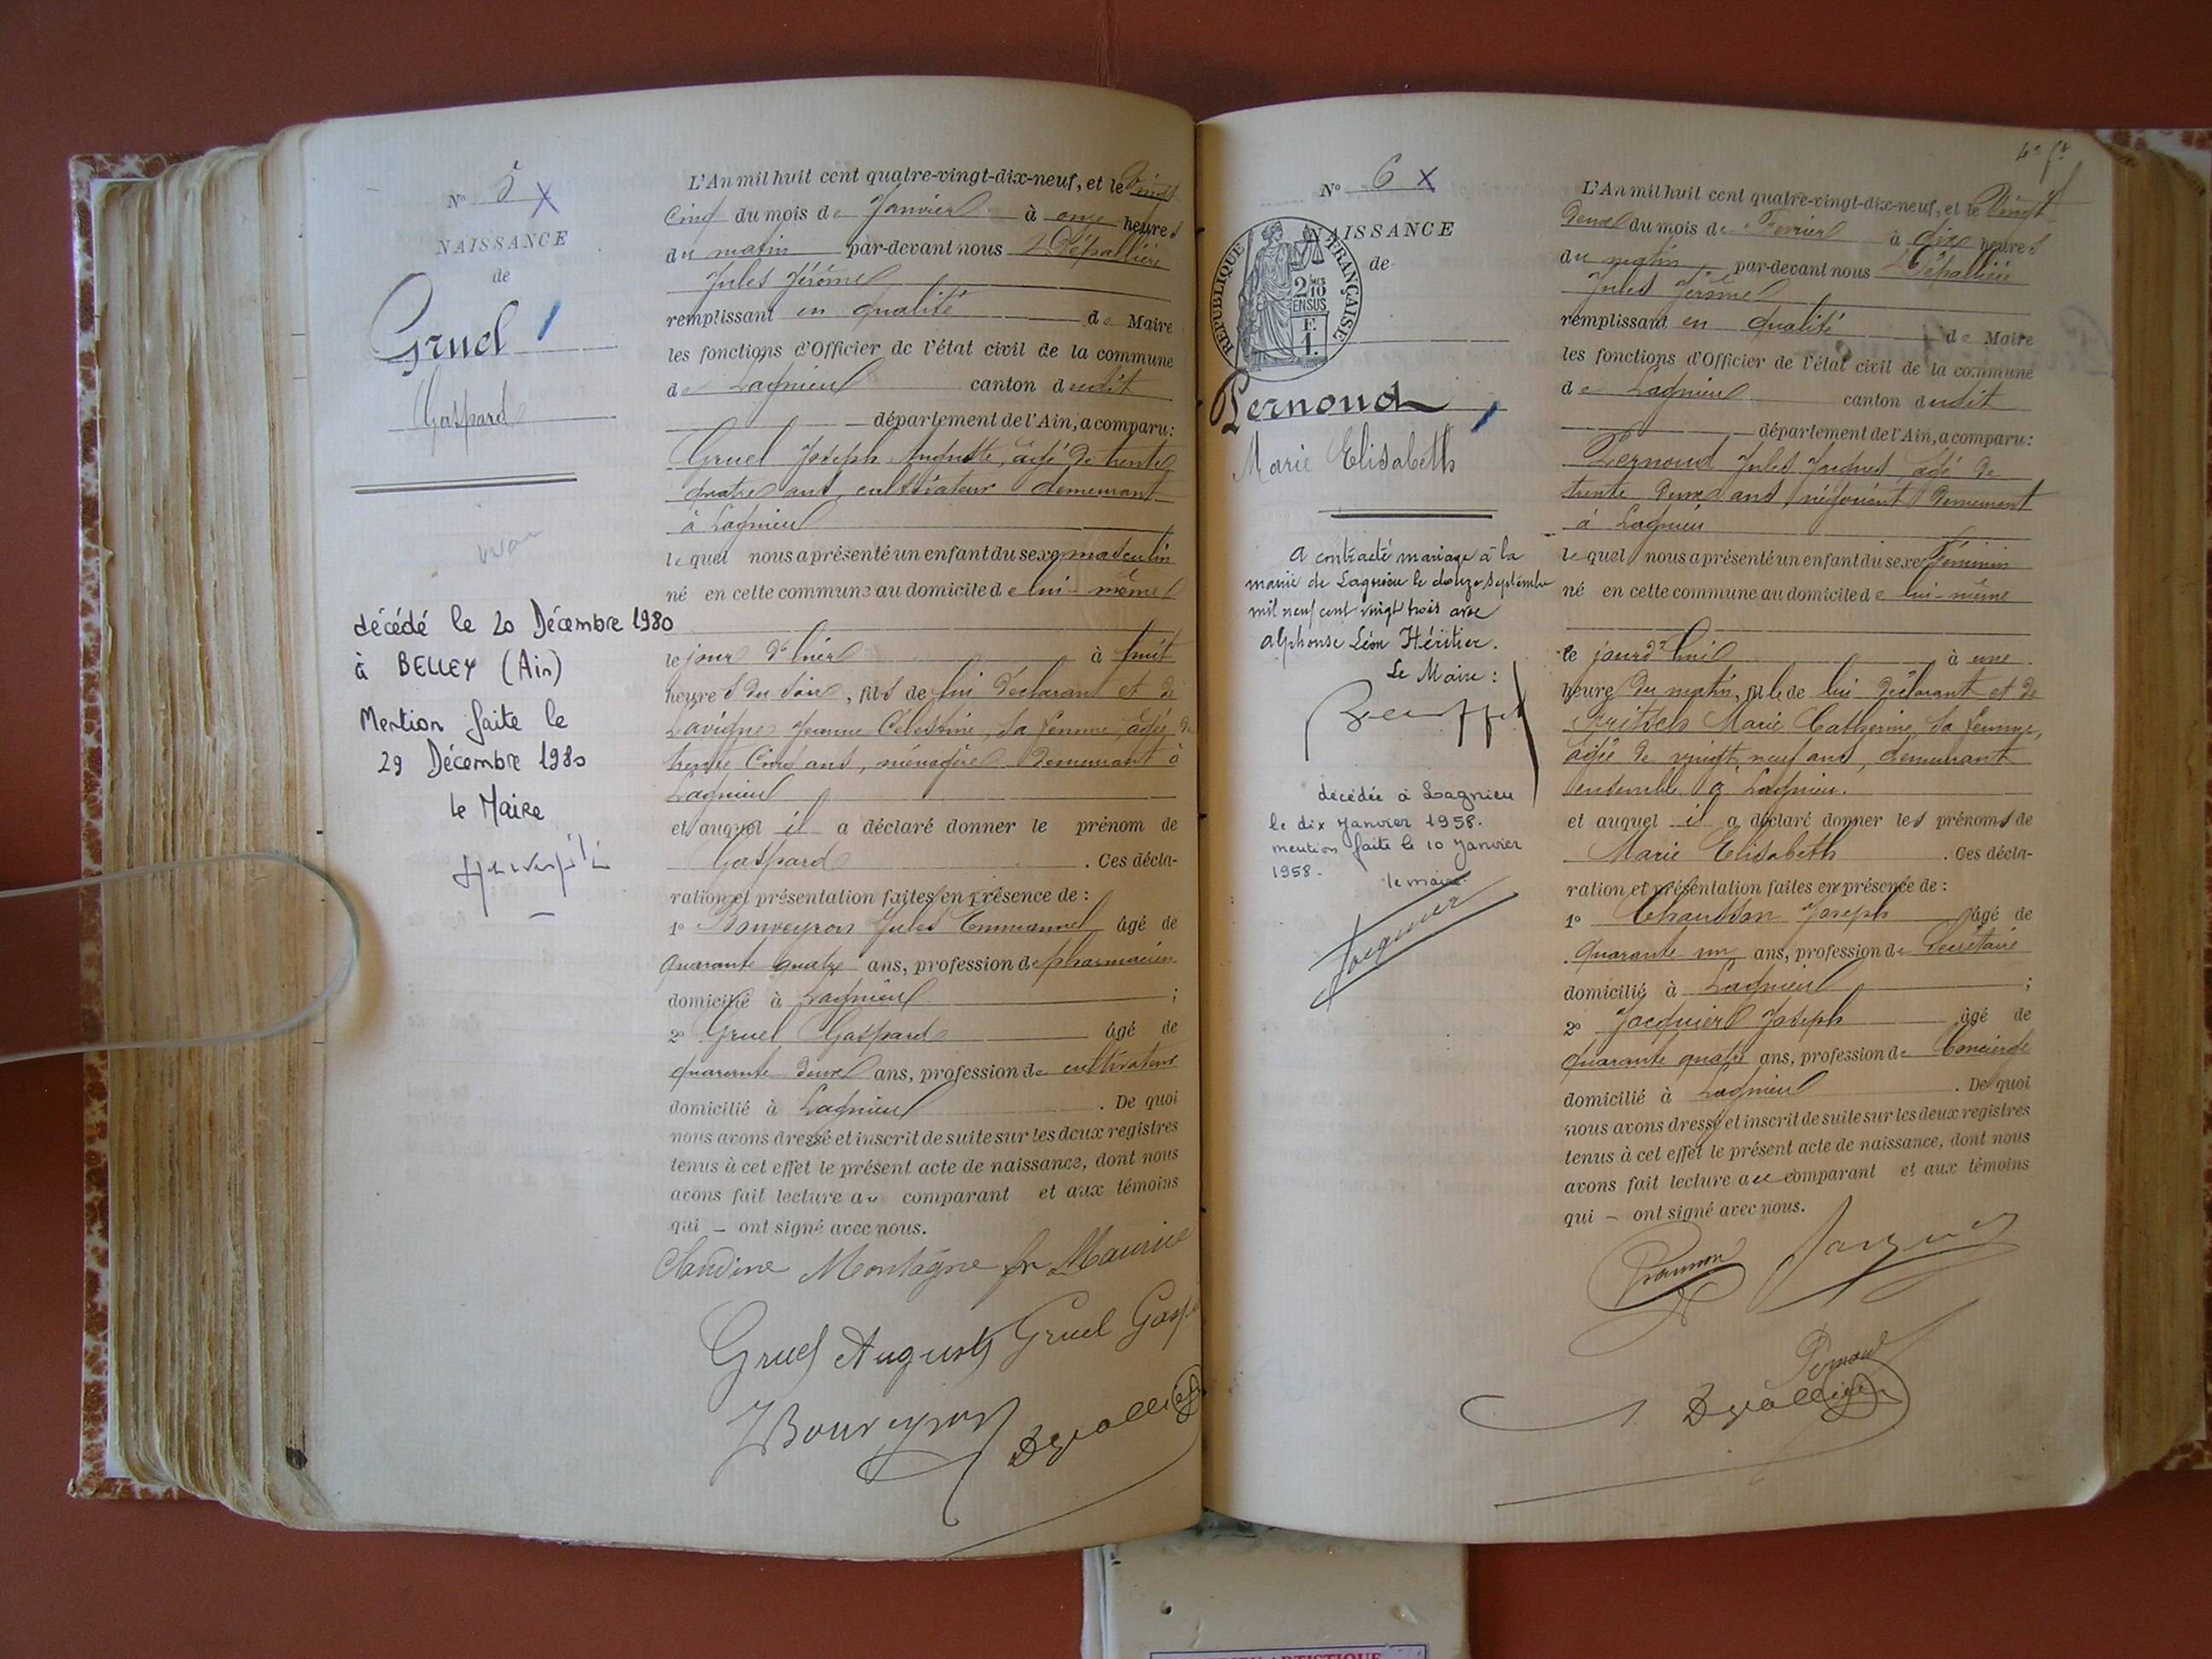 N° 5 X
NAISSANCE
de
Gruel
Gaspard
décédé le 20 Décembre 1980
à BELLEY (Ain)
Mention faite le
29 Décembre 1980
le Maire
L'An mil huit cent quatre-vingt-dix-neuf, et le vingt
cinq du mois de Janvier à onze heures
du matin par-devant nous Dépallière
Jules Jérôme
remplissant en qualité de Maire
les fonctions d'Officier de l'état civil de la commune
de Lagnieu canton dudit
département de l'Ain, a comparu:
Gruel Joseph Auguste, âgé de trente
quatre ans, cultivateur demeurant
à Lagnieu
lequel nous a présenté un enfant du sexe masculin
né en cette commune au domicile de lui-même
le jour d'hier à huit
heures du soir, fils de lui déclarant et de
Lavigne Jeanne Célestine, sa femme, âgée de
trente cinq ans, ménagère demeurant à
Lagnieu
et auquel il a déclaré donner le prénom de
Gaspard. Ces décla-
ration et présentation faites en présence de :
1° Bouveyron Jules Emmanuel âgé de
quarante quatre ans, profession de pharmacien
domicilié à Lagnieu ;
2° Gruel Gaspard âgé de
quarante deux ans, profession de cultivateur
domicilié à Lagnieu. De quoi
nous avons dressé et inscrit de suite sur les deux registres
tenus à cet effet le présent acte de naissance, dont nous
avons fait lecture au comparant et aux témoins
qui – ont signé avec nous.
Claudine Montagne fe Maurice
Gruel Auguste Gruel Gasp
J Bouveyron Dépallière
4e ft
N° 6 X
NAISSANCE
de
RÉPUBLIQUE FRANÇAISE
2/10 MES
EN SUS
F.
1.
Pernoud
Marie Elisabeth
a contracté mariage à la
mairie de Lagnieu le douze septembre
mil neuf cent vingt trois avec
Alphonse Léon Héritier.
Le Maire :
décédée à Lagnieu
le dix janvier 1958.
mention faite le 10 janvier
1958 -
le maire.
L'An mil huit cent quatre-vingt-dix-neuf, et le vingt
deux du mois de Février à dix heures
du matin par-devant nous Dépallière
Jules Jérôme
remplissant en qualité de Maire
les fonctions d'Officier de l'état civil de la commune
de Lagnieu canton dudit
département de l'Ain, a comparu:
Pernoud Jules Jacques, âgé de
trente deux ans, négociant demeurant
à Lagnieu
lequel nous a présenté un enfant du sexe féminin
né en cette commune au domicile de lui-même
le jourd'hui à une
heure du matin, fille de lui déclarant et de
Marie Catherine, sa femme,
âgée de vingt neuf ans, demeurant
ensemble à Lagnieu.
et auquel il a déclaré donner les prénoms de
Marie Elisabeth. Ces décla-
ration et présentation faites en présence de :
1° Chausson Joseph âgé de
quarante un ans, profession de Secrétaire
domicilié à Lagnieu ;
2° Jacquier Joseph âgé de
quarante quatre ans, profession de Concierge
domicilié à Lagnieu. De quoi
nous avons dressé et inscrit de suite sur les deux registres
tenus à cet effet le présent acte de naissance, dont nous
avons fait lecture au comparant et aux témoins
qui – ont signé avec nous.
Pernoud
Dépallière
ARTISTIQUE